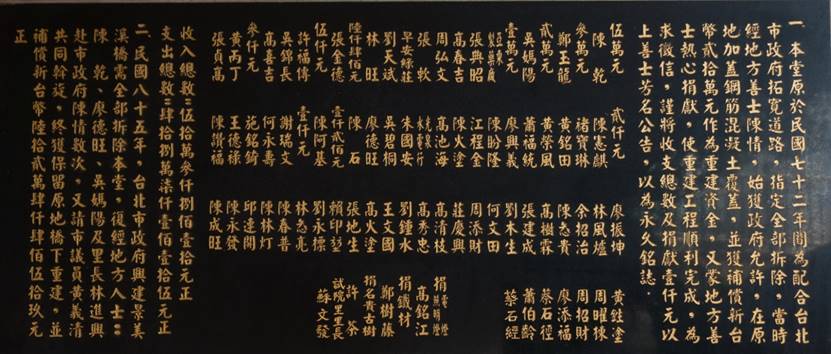 一、本堂原於民國七十二年間為配合台北
市政府拓寬道路，指定全部拆除，當時
經地方善士陳情，始獲政府允許，在原
地加蓋鋼筋混凝土覆蓋，並獲補償新台
幣貳拾萬元作為重建資金，又蒙地方善
士熱心捐獻，使重建工程順利完成，為
求徵信，謹將收支總數及捐獻壹仟元以
上善士芳名公告，以為永久銘誌．
伍萬元
陳乾
叁萬元
鄭玉龍
貳萬元
吳媽陽
壹萬元
張興昭
高春吉
周弘文
張軟
早安綠莊
劉天斌
林旺
陸仟肆佰元
張金德
伍仟元
許福傳
吳錦長
高喜吉
叁仟元
黃丙丁
張貞高
貳仟元
陳憲麒
褚寶珍
黃銘田
黃榮風
蕭福統
廖興義
陳盼隆
江程金
陳火塗
高池海
朱國安
吳碧桐
廖德旺
陳石
壹仟貳佰元
陳阿基
壹仟元
謝瑞文
何永壽
施銘錡
王德祿
陳讚福
廖振坤
林風爐
余招治
陳志貴
高樹霖
張建成
劉木生
何文田
周添財
莊慶興
高清枝
高秀忠
劉鐘水
王文國
高火塗
張地生
賴印堃
劉永標
林志亮
陳春普
陳林灯
邱達開
陳永發
陳成旺
黃銓塗
周曜棟
周招財
廖添福
蔡石徑
蕭伯齡
蔡石經
捐
高銘江
捐鐵材
鄭樹藤
捐名貴古樹
許茶
試院里里長
蘇文發
收入總數：伍拾萬叁仟捌佰壹拾元正
支出總數：肆拾捌萬柒仟壹佰壹拾伍元正
二、民國八十五年，台北市政府興建景美
溪橋需全部拆除本堂，復經地方人士：
陳乾、廖德旺、吳媽陽及里長林進興
赴市政府陳情數次，又請市議員黃義清
共同斡旋，終獲保留原地橋下重建，並
補償新台幣陸拾貳萬肆仟肆佰伍拾玖元
正